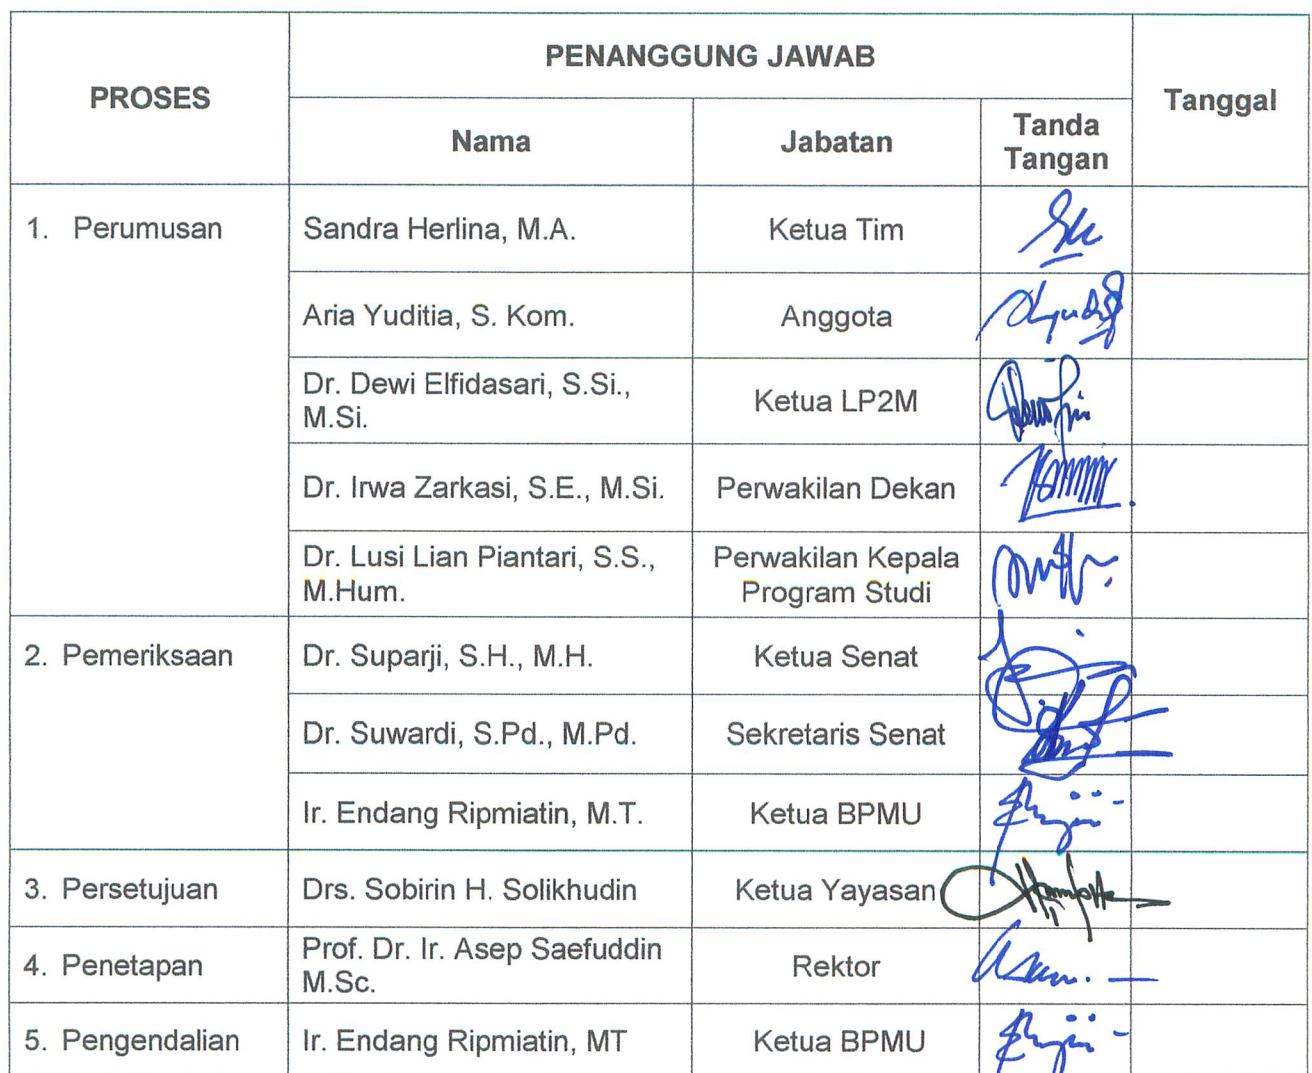 PROSES
PENANGGUNG JAWAB
Tanggal
Nama
Jabatan
Tanda
Tangan
1. Perumusan
Sandra Herlina, M.A.
Ketua Tim
Aria Yuditia, S. Kom.
Anggota
Dr. Dewi Elfidasari, S.Si.,
M.Si.
Ketua LP2M
Dr. Irwa Zarkasi, S.E., M.Si.
Perwakilan Dekan
Dr. Lusi Lian Piantari, S.S.,
M.Hum.
Perwakilan Kepala
Program Studi
2. Pemeriksaan
Dr. Suparji, S.H., M.H.
Ketua Senat
Dr. Suwardi, S.Pd., M.Pd.
Sekretaris Senat
Ir. Endang Ripmiatin, M.T.
Ketua BPMU
3. Persetujuan
Drs. Sobirin H. Solikhudin
Ketua Yayasan
4. Penetapan
Prof. Dr. Ir. Asep Saefuddin
M.Sc.
Rektor
5. Pengendalian
Ir. Endang Ripmiatin, MT
Ketua BPMU